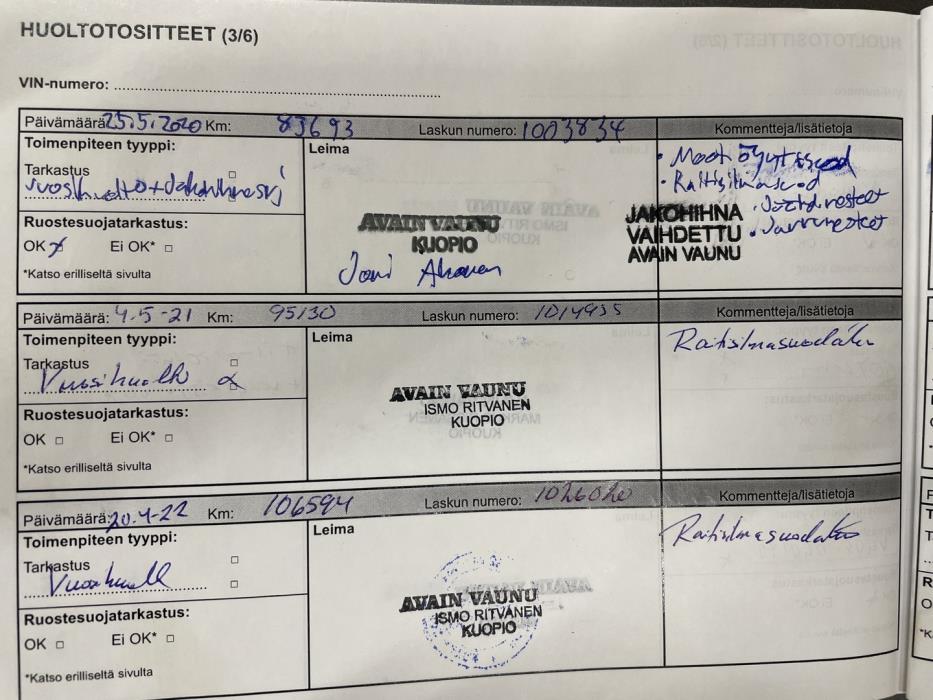 HUOLTOTOSITTEET (3/6)
VIN-numero:
Päivämäärä: 25.5.2020 Km: 83693 Laskun numero: 1003834 Kommentteja/lisätietoja
Toimenpiteen tyyppi:
Leima
Tarkastus
Ruostesuojatarkastus:
OK Ei OK*
*Katso erilliseltä sivulta
AVAIN VAUNU
KUOPIO
Joni
JAKOHIHNA
VAIHDETTU
AVAIN VAUNU
Päivämäärä: 4.5-21 Km: 95130 Laskun numero: 1014935 Kommentteja/lisätietoja
Toimenpiteen tyyppi:
Leima
Tarkastus
Vuosihuolto
Ruostesuojatarkastus:
OK Ei OK*
*Katso erilliseltä sivulta
AVAIN VAUNU
ISMO RITVANEN
KUOPIO
Raitisilmasuodatin
Päivämäärä: 20.4-22 Km: 106594 Laskun numero: 1026020 Kommentteja/lisätietoja
Toimenpiteen tyyppi:
Leima
Tarkastus
Ruostesuojatarkastus:
OK Ei OK*
*Katso erilliseltä sivulta
AVAIN VAUNU
ISMO RITVANEN
KUOPIO